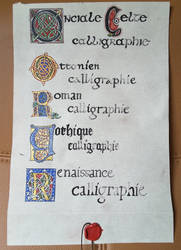 Onciale Celte
calligraphie
Ottonien
calligraphie
Roman
calligraphie
Gothique
calligraphie
Renaissance
calligraphie